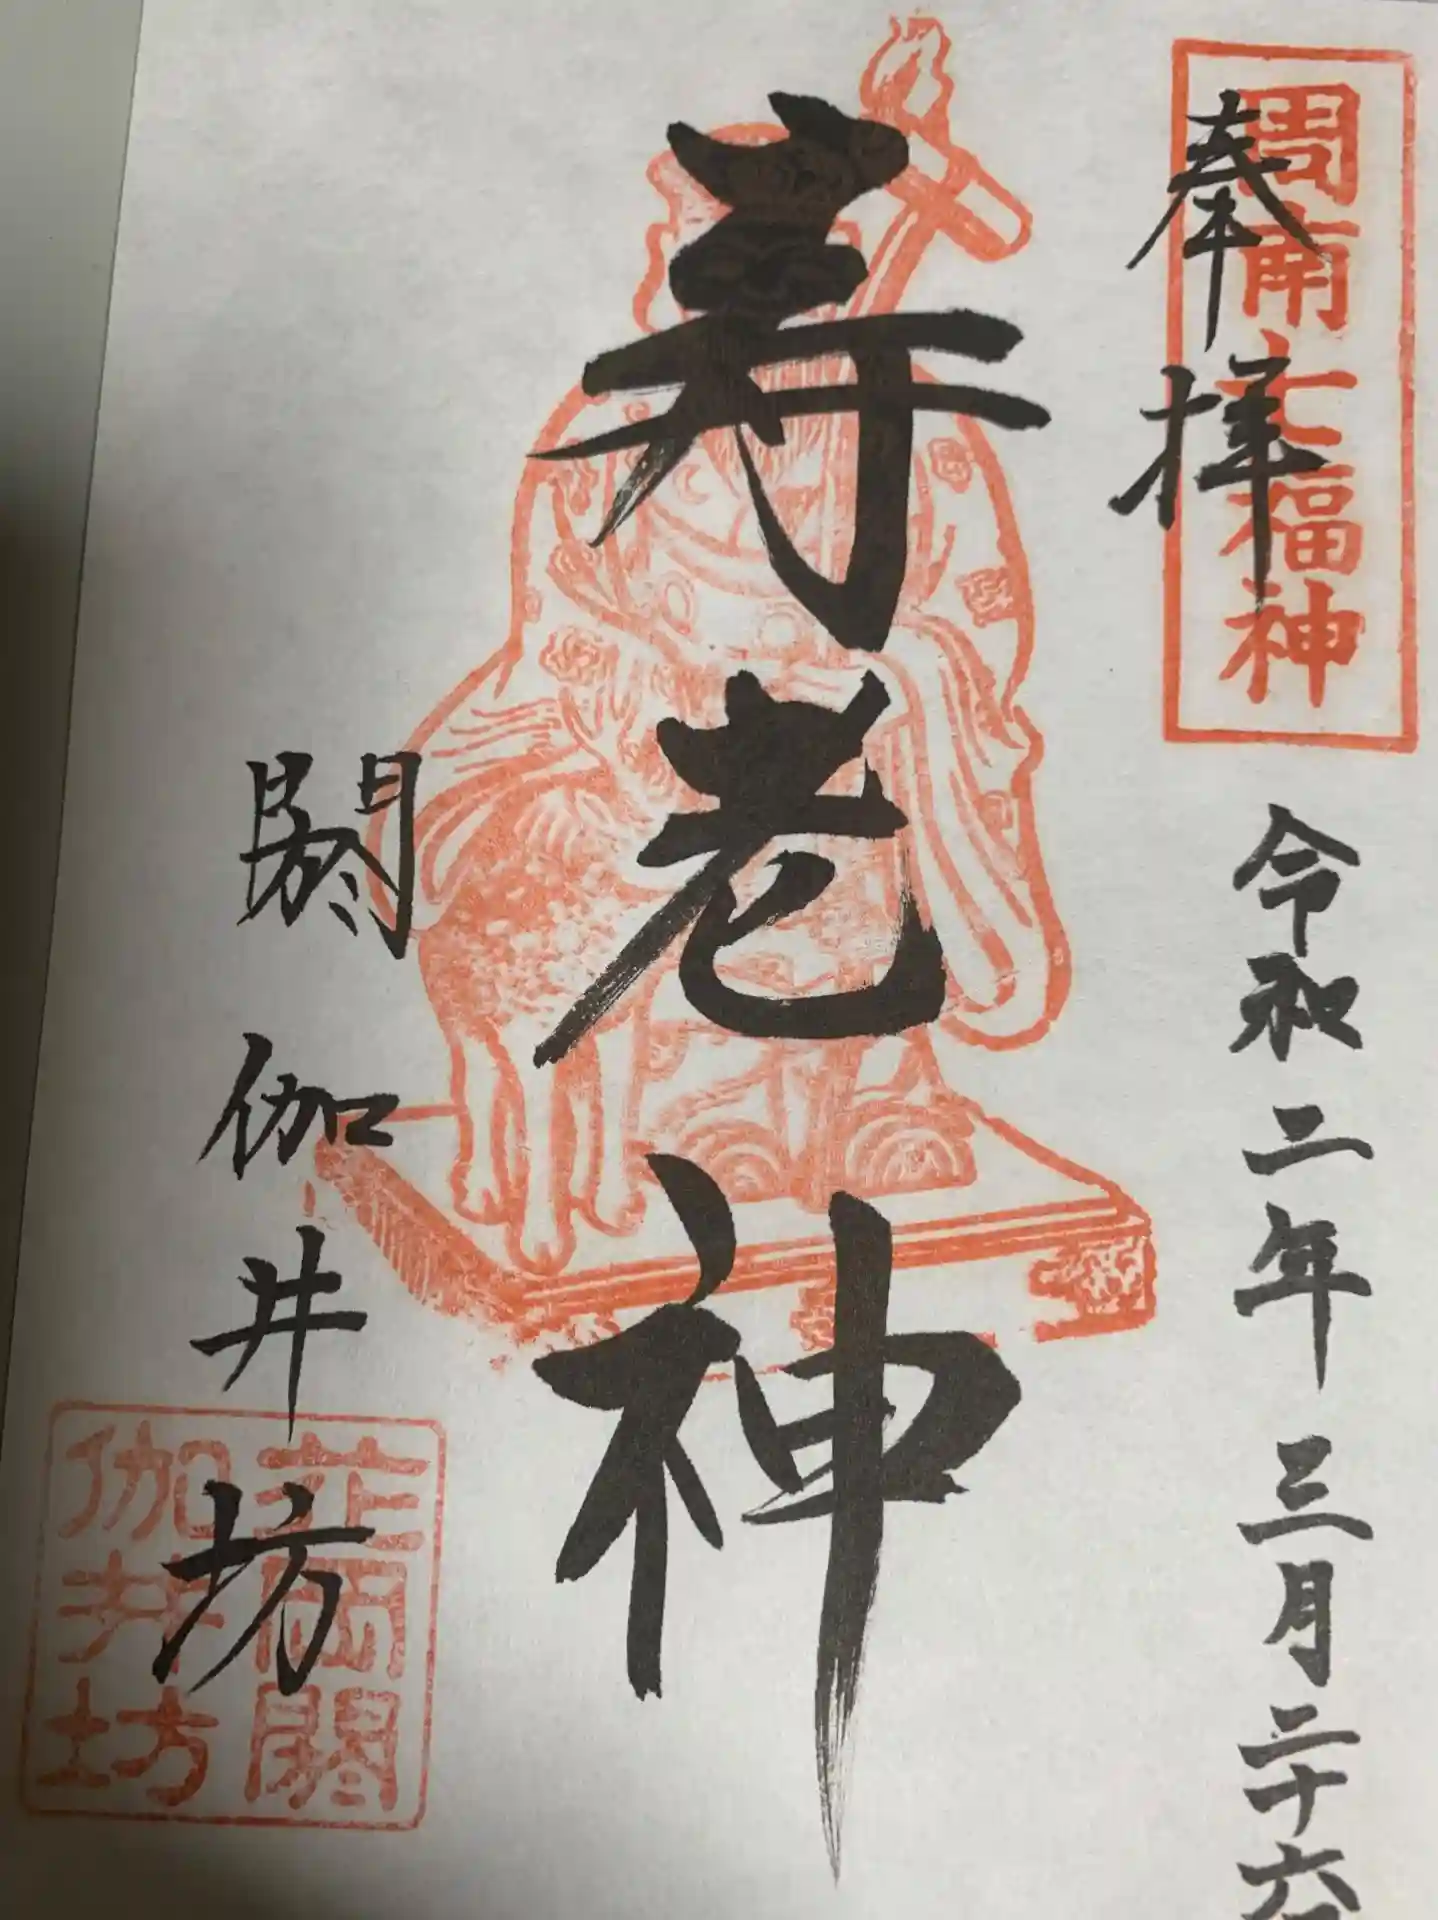 周南七福神
奉拝
令和二年三月二十六
寿老神
閼伽井坊
花岡閼
伽井坊